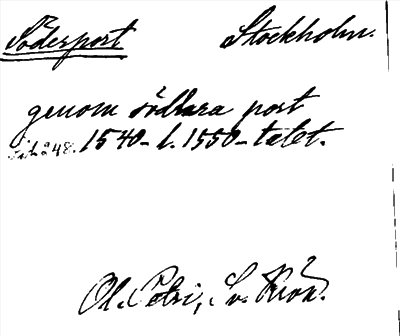 Söderport Stockholm.
genom södhra port
sid. 248. 1540- l. 1550-talet.
Ol. Petri, Sv. Krön.